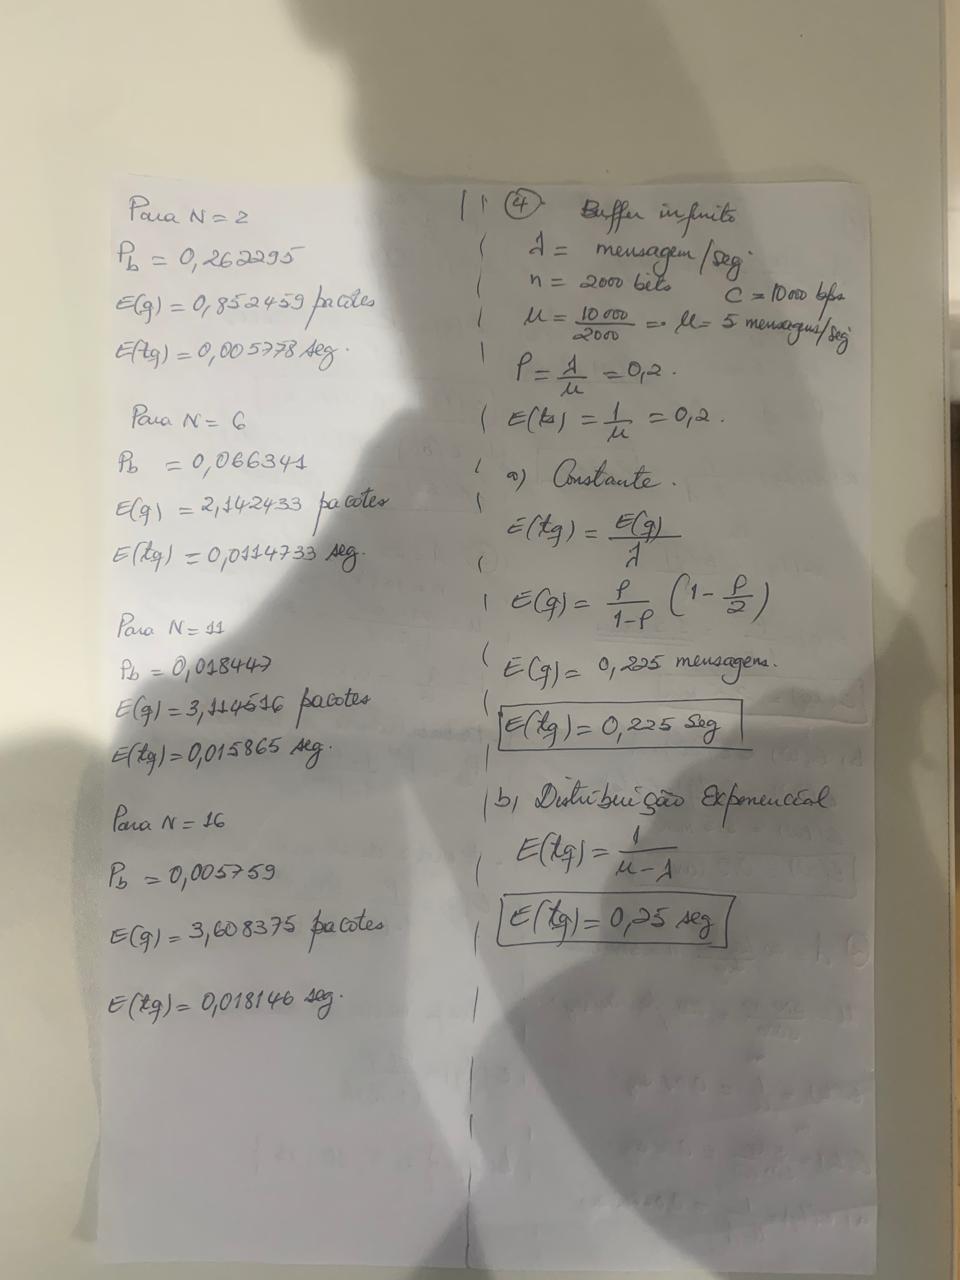 Para N = 2
Pb = 0,262295
E(q) = 0,852459 pacotes
E(tq) = 0,005778 seg.
Para N = 6
Pb = 0,066341
E(q) = 2,142433 pacotes
E(tq) = 0,0114733 seg.
Para N = 11
Pb = 0,018447
E(q) = 3,114516 pacotes
E(tq) = 0,015865 seg.
Para N = 16
Pb = 0,005759
E(q) = 3,608375 pacotes
E(tq) = 0,018146 seg.
④ Buffer infinito
λ = mensagem/seg
n = 2000 bits C = 10000 bps
μ = 10000/2000 => μ = 5 mensagens/seg
ρ = λ/μ = 0,2.
E(ts) = 1/μ = 0,2.
a) Constante.
E(tq) = E(q)/λ
E(q) = ρ/1-ρ (1 - ρ/2)
E(q) = 0,225 mensagens.
E(tq) = 0,225 seg
b) Distribuição Exponencial
E(tq) = 1/μ-λ
E(tq) = 0,25 seg